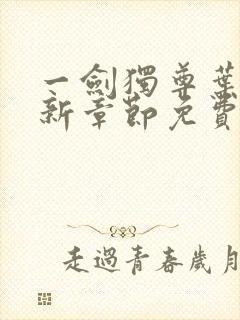 一劍獨尊葉
新章節免費
走過青春歲月